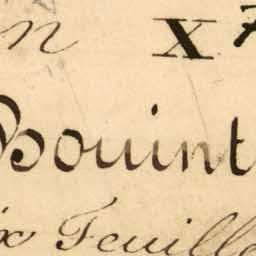 n X 7
Bouint
ix Feuille